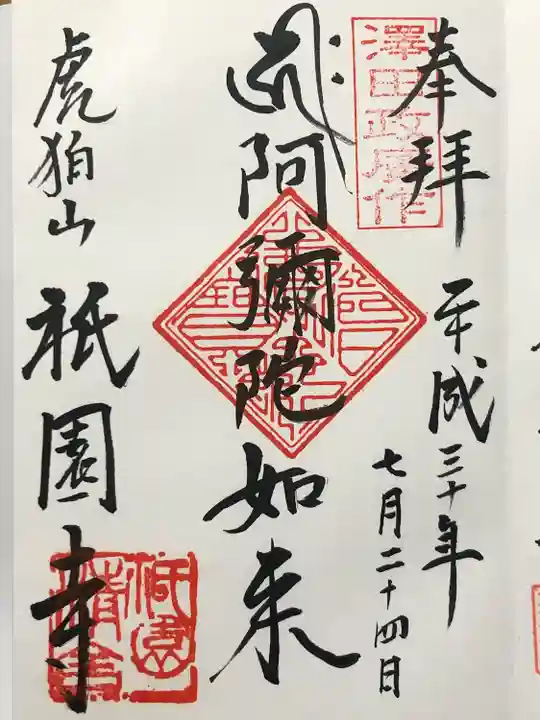 奉拝
平成三十年
七月二十四日
阿彌陀如来
虎狛山
祇園寺
澤田政廣作